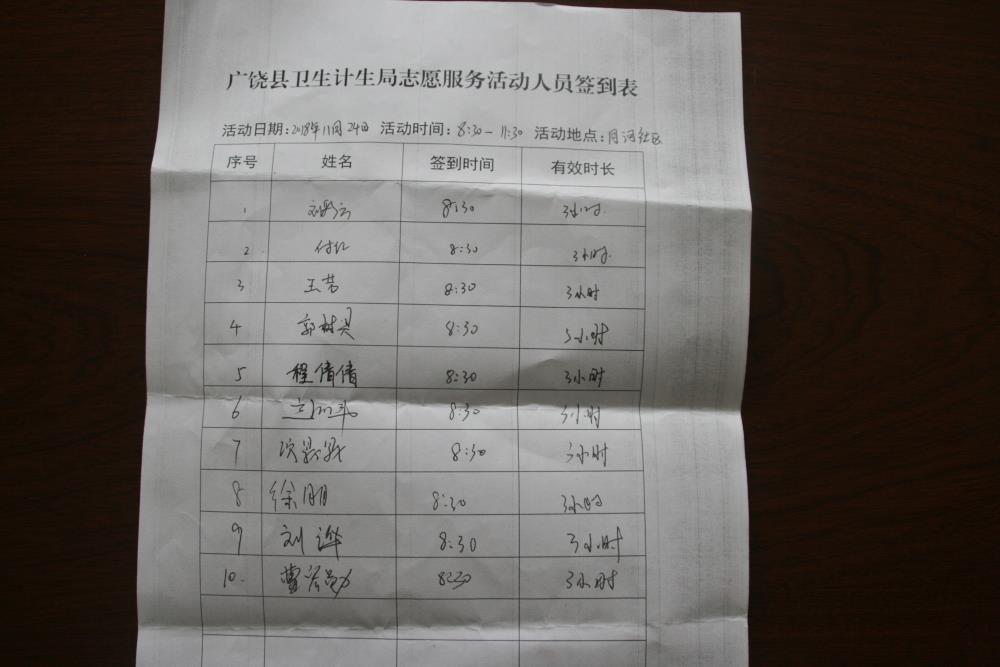 广饶县卫生计生局志愿服务活动人员签到表
活动日期:2018年11月24日 活动时间:8:30-11:30 活动地点:月河社区
序号 姓名 签到时间 有效时长
1 8:30 3小时
2 付红 8:30 3小时
3 王芳 8:30 3小时
4 郭树兵 8:30 3小时
5 程倩倩 8:30 3小时
6 8:30 3小时
7 8:30 3小时
8 徐明 8:30 3小时
9 刘 8:30 3小时
10. 曹 8:30 3小时